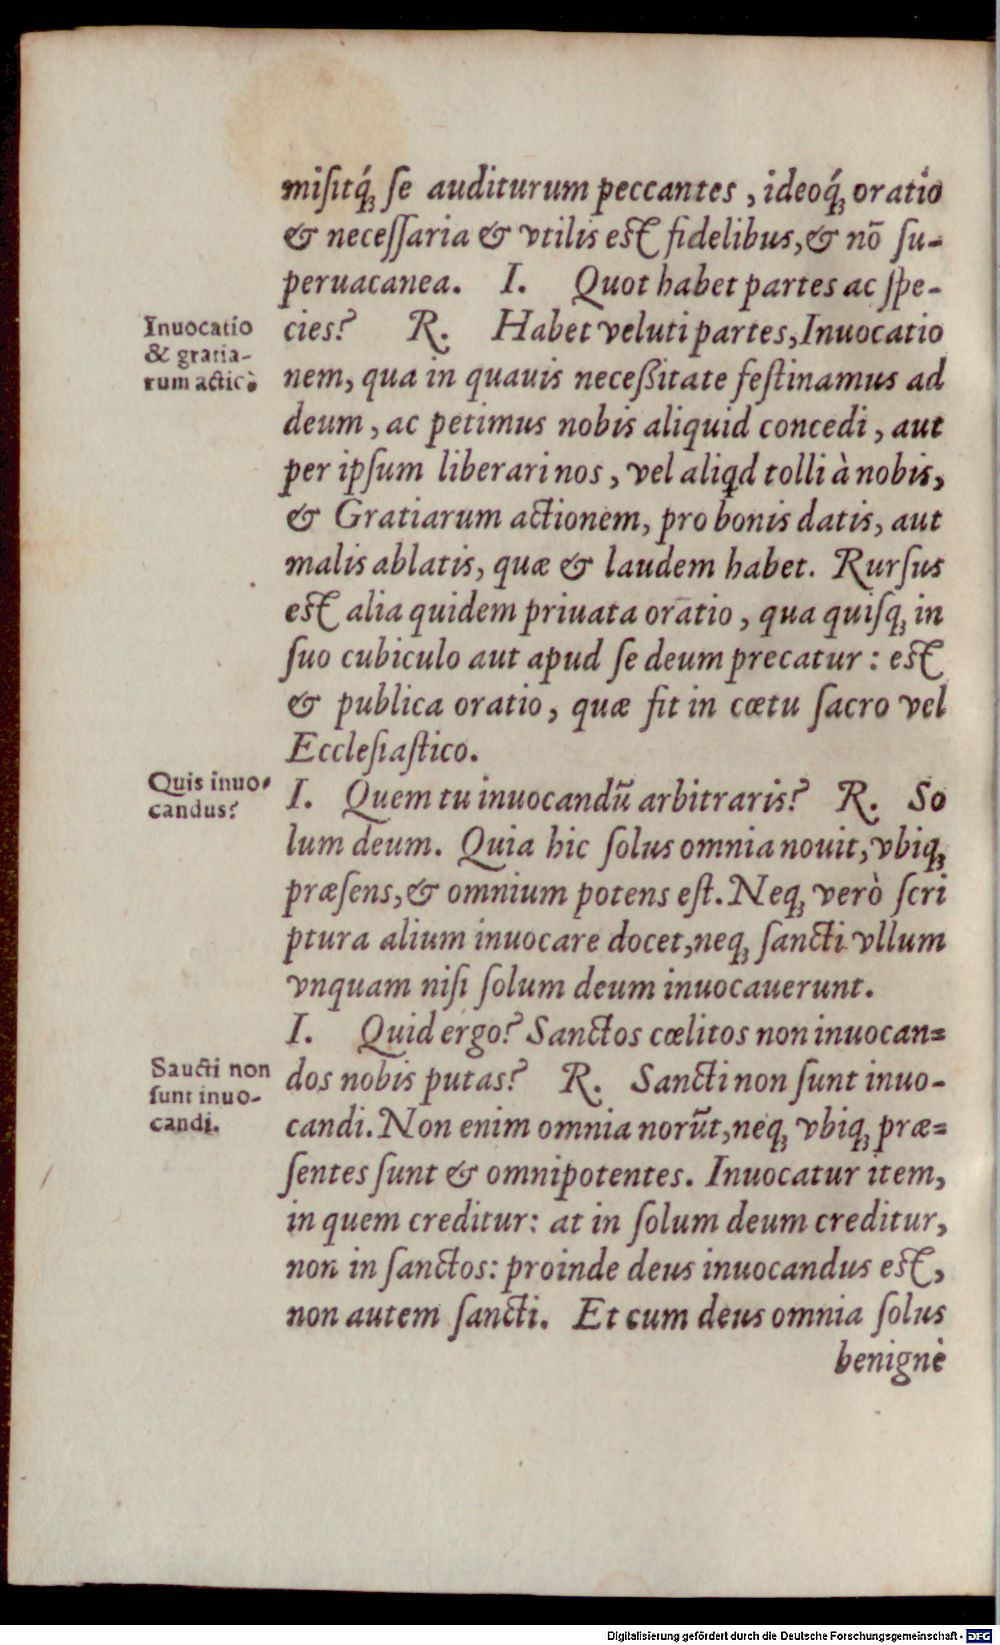 misitq́ꝫ se auditurum peccantes, ideoq́ꝫ oratio
& necessaria & vtilis est fidelibus, & nō su-
peruacanea. I. Quot habet partes ac spe-
cies? R. Habet veluti partes, Inuocatio
nem, qua in quauis necessitate festinamus ad
deum, ac petimus nobis aliquid concedi, aut
per ipsum liberari nos, vel aliqd tolli à nobis,
& Gratiarum actionem, pro bonis datis, aut
malis ablatis, quæ & laudem habet. Rursus
est alia quidem priuata oratio, qua quisqꝫ in
suo cubiculo aut apud se deum precatur: est
& publica oratio, quæ fit in cœtu sacro vel
Ecclesiastico.
Inuocatio
& gratia-
rum actiō.
I. Quem tu inuocandū arbitraris? R. So
lum deum. Quia hic solus omnia nouit, vbiqꝫ
præsens, & omnium potens est. Neqꝫ verò scri
ptura alium inuocare docet, neqꝫ sancti vllum
vnquam nisi solum deum inuocauerunt.
Quis inuo-
candus?
I. Quid ergo? Sanctos cœlitos non inuocan=
dos nobis putas? R. Sancti non sunt inuo-
candi. Non enim omnia norūt, neqꝫ vbiqꝫ præ=
sentes sunt & omnipotentes. Inuocatur item,
in quem creditur: at in solum deum creditur,
non in sanctos: proinde deus inuocandus est,
non autem sancti. Et cum deus omnia solus
Saucti non
sunt inuo-
candi.
benignè
Digitalisierung gefördert durch die Deutsche Forschungsgemeinschaft - DFG